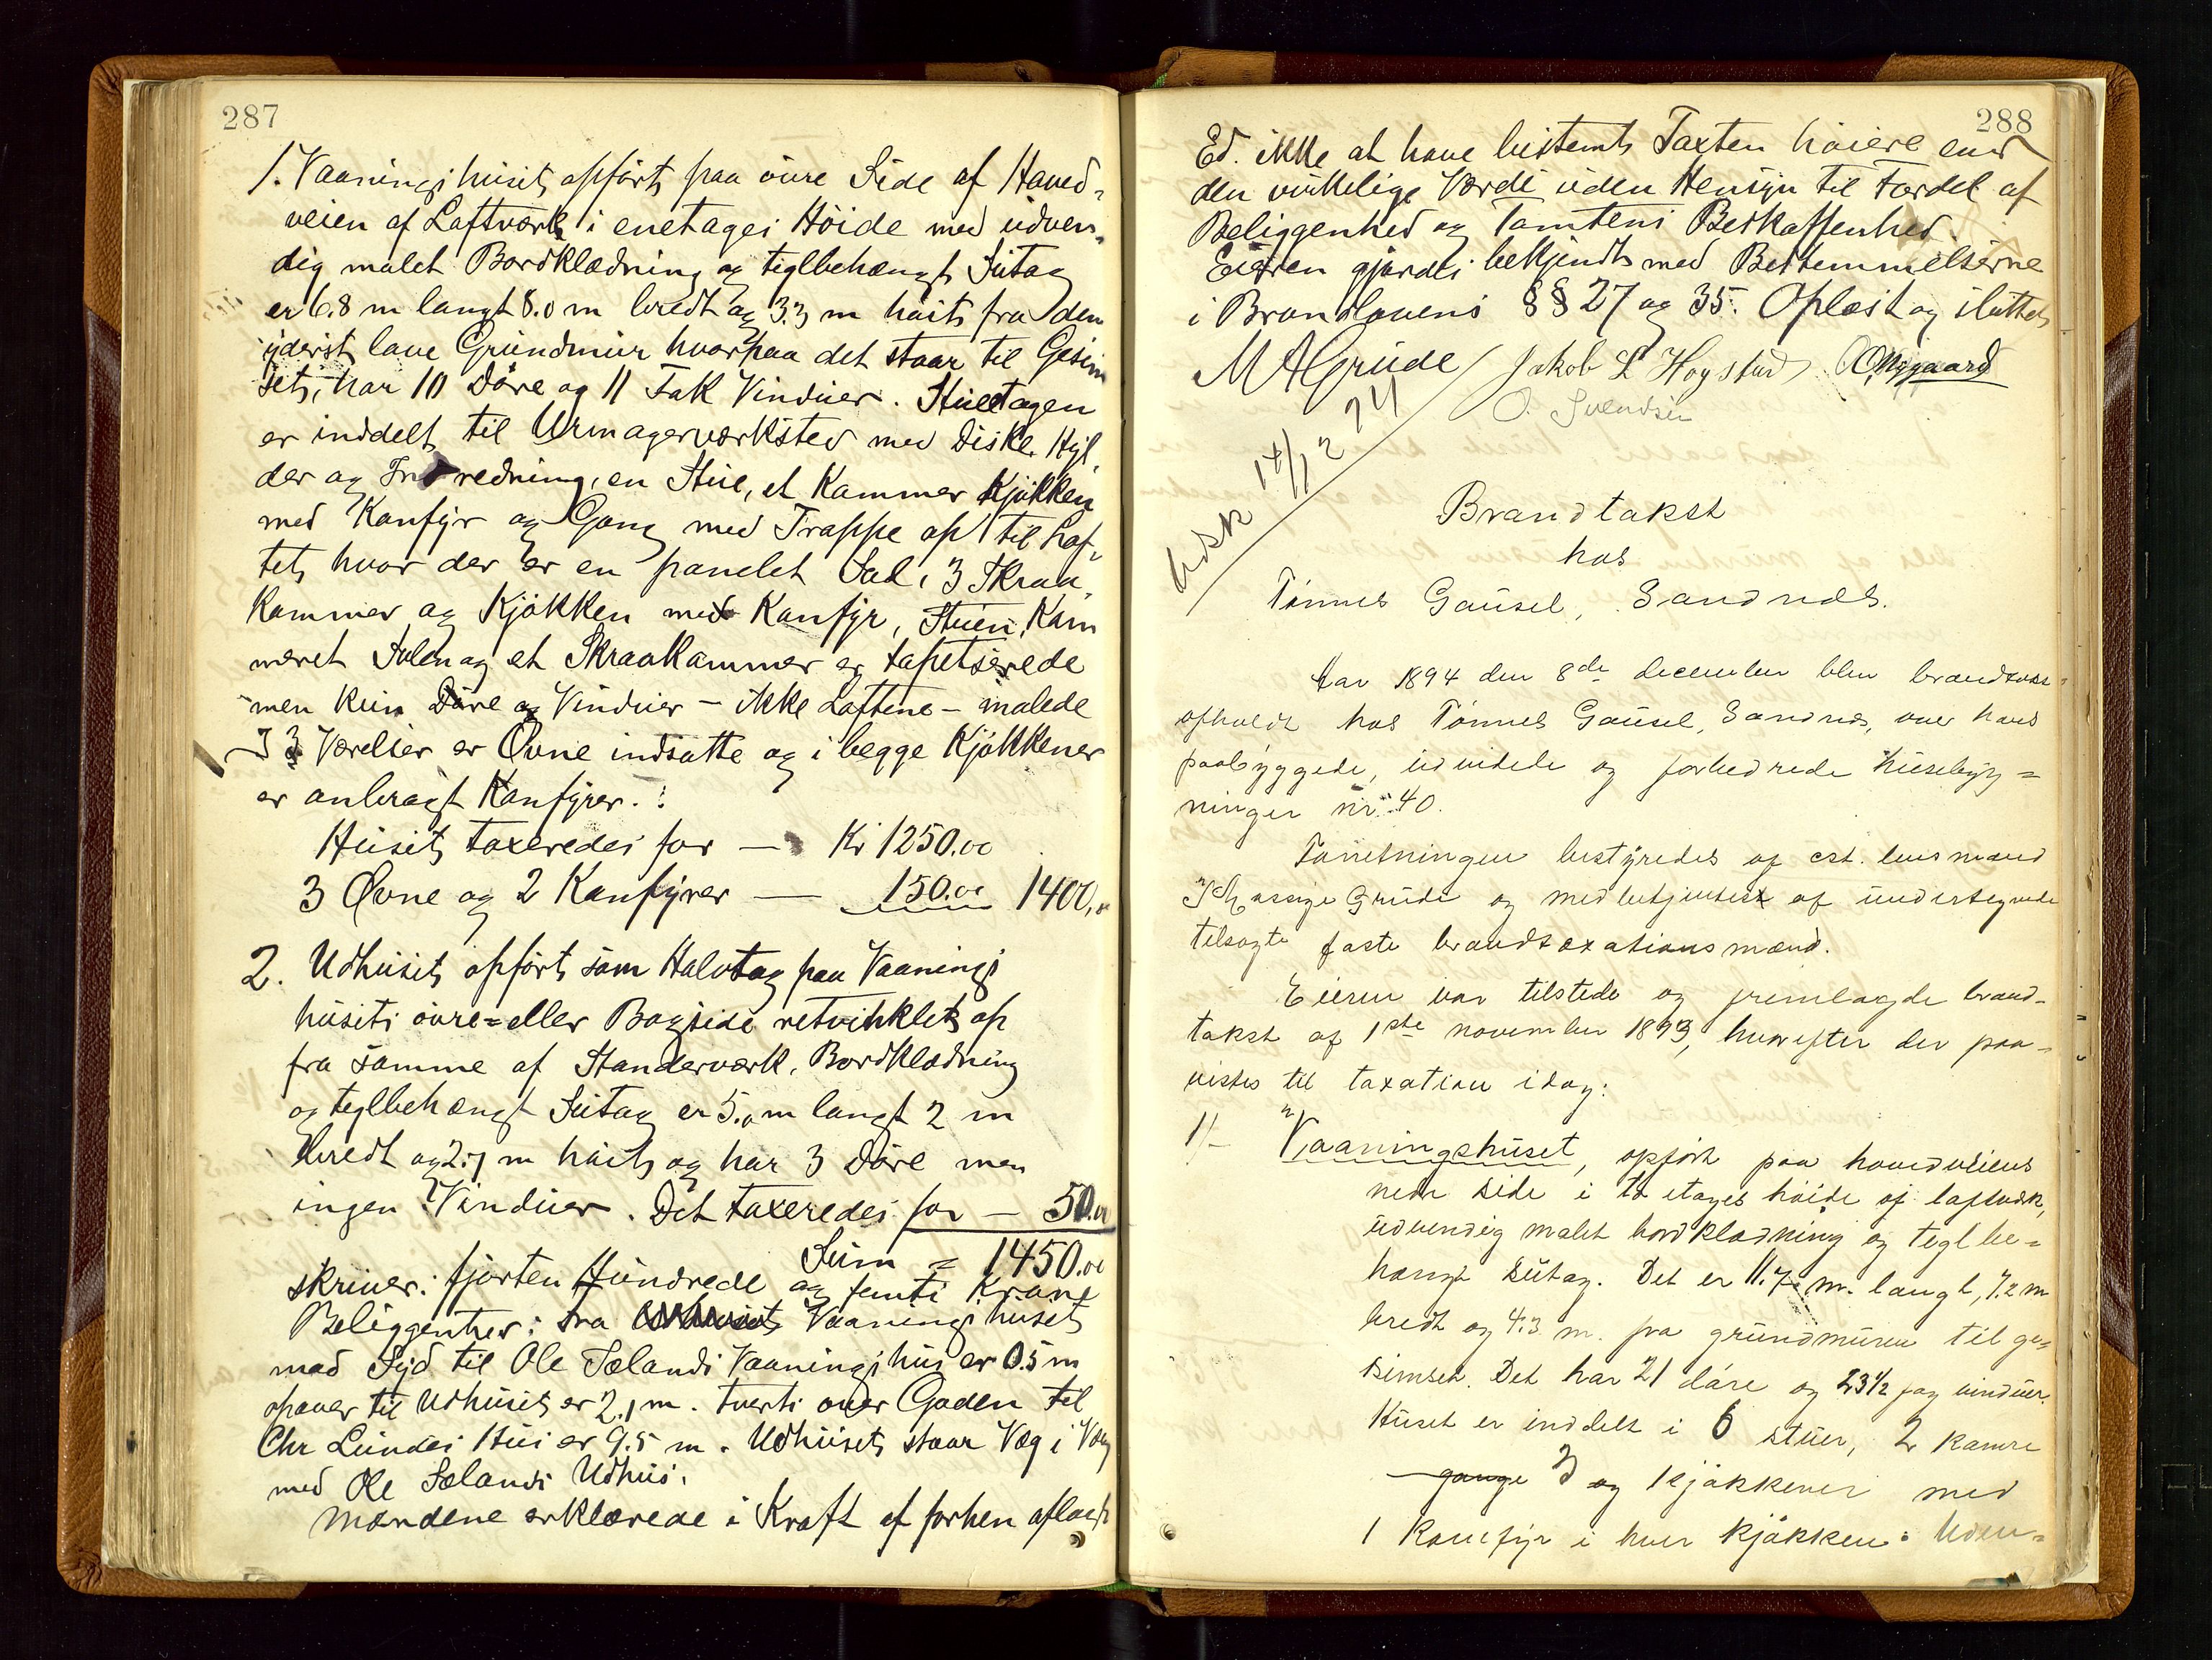 287
1. Vaaningshuset opført paa øvre Side af Hoved-
veien af Laftværk i enetages Høide med udven-
dig malet Bordklædning og teglbehængt Sutag
er 6.8 m langt 8.0 m bredt og 3.3 m høit fra den
yderst lave Grundmur hvorpaa det staar til Gesim
set, har 10 Døre og 11 Fak Vinduer. Stueetagen
er inddelt til Urmagerværksted med Diske Hyl-
der og Indredning, en Stue, et Kammer Kjøkken
med Komfyr og Gang med Trappe op til Lof-
tet hvor der er en panelet Sal, 3 Skraa-
kammer og Kjøkken med Komfyr, Stuen, Kam
meret Salen og et Skraakammer er tapetserede
men kun Døre og Vinduer - ikke Loftene - malede
I 3 Værelser er Ovne indsatte og i begge Kjøkkener
er anbragt Komfyrer.
Huset taxeredes for — Kr 1250.00
3 Ovne og 2 Komfyrer — 150.00 1400,00
2. Udhuset opført som Halvtag paa Vaanings
husets øvre= eller Bagside retvinklet op
fra samme af Standerværk, Bordklædning
og teglbehængt Sutag er 5.0 m langt 2 m
bredt og 2.7 m høit og har 3 Døre men
ingen Vinduer. Det taxeredes for — 50.00
Sum = 1450.00
skriver: fjorten Hundrede og femti Kroner
Beliggenhed: Fra Vaaningshuset
mod Syd til Ole Sælands Vaaningshus er 0.5 m
opover til Udhuset er 2.1 m. tverts over Gaden til
Chr Lundes Hus er 9.5 m. Udhuset staar Væg i Væg
med Ole Sælands Udhus.
Mændene erklærede i Kraft af forhen aflagt
288
Ed. ikke at have bestemt Taxten høiere end
den virkelige Værdi uden Hensyn til Fordel af
Beliggenhed og Tomtens Beskaffenhed.
Eieren gjordes bekjendt med Bestemmelserne
i Brandlovens §§ 27 og 35. Oplæst og sluttet
M A Grude / Jakob L Hogstad
O. Svendsen
Udsk 14/12 94
Brandtakst
hos
Tønnes Gausel, Sandnæs.
Aar 1894 den 8de december blev brandtaxt
afholdt hos Tønnes Gausel, Sandnæs, over hans
paabyggede, udvidede og forbedrede husebyg=
ninger nr. 40.
Forretningen bestyredes af cst. lensmand
Grude og medbetjentest af undertegnede
tilsagte faste brandtaxationsmænd.
Eieren var tilstede og fremlagde brand-
takst af 1ste november 1893, hvorefter der paa-
vistes til taxation idag:
1/- Vaaningshuset, opført paa hovedveiens
nedr side i to etages høide af laftværk,
udvendig malet bordklædning og teglbe=
hængt sutag. Det er 11.7 m. langt, 7.2 m
bredt og 4.3 m. fra grundmuren til ge=
simset. Det har 21 døre og 23½ fag vinduer.
Huset er inddelt i 6 stuer, 2 kamre
gange 3 og kjøkkener med
1 Komfyr i hver kjøkken. Uden-